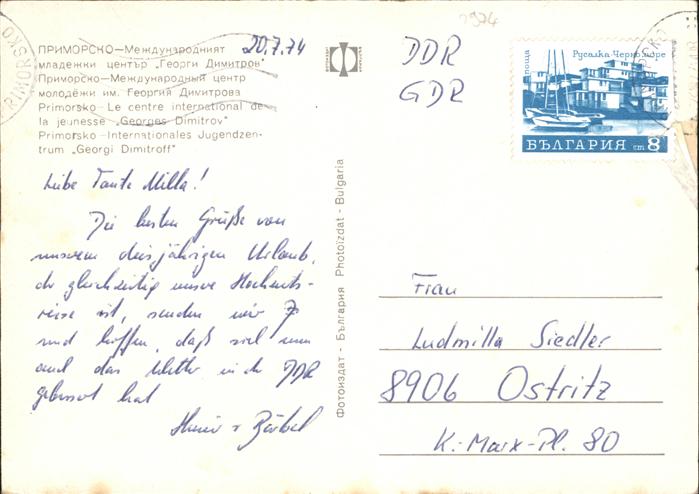 1974
PRIMORSKO
ПРИМОРСКО—Международният
младежки център „Георги Димитров"
Приморско—Международный центр
молодёжи им. Георгия Димитрова
Primorsko—Le centre international de
la jeunesse „Georges Dimitrov"
Primorsko—Internationales Jugendzen-
trum „Georgi Dimitroff"
20.7.74
DDR
GDR
поща
Русалка-Черно море
БЪЛГАРИЯ ст 8
Liebe Tante Milla!
Die besten Grüße von
unserem diesjährigen Urlaub,
der gleichzeitig unsere Hochzeits-
reise ist, senden wir
und hoffen, daß sich nun
auch das Wetter in der DDR
gebessert hat
Bärbel
Фотоиздат - България Photoizdat - Bulgaria
Frau
Ludmilla Siedler
8906 Ostritz
K.-Marx-Pl. 80